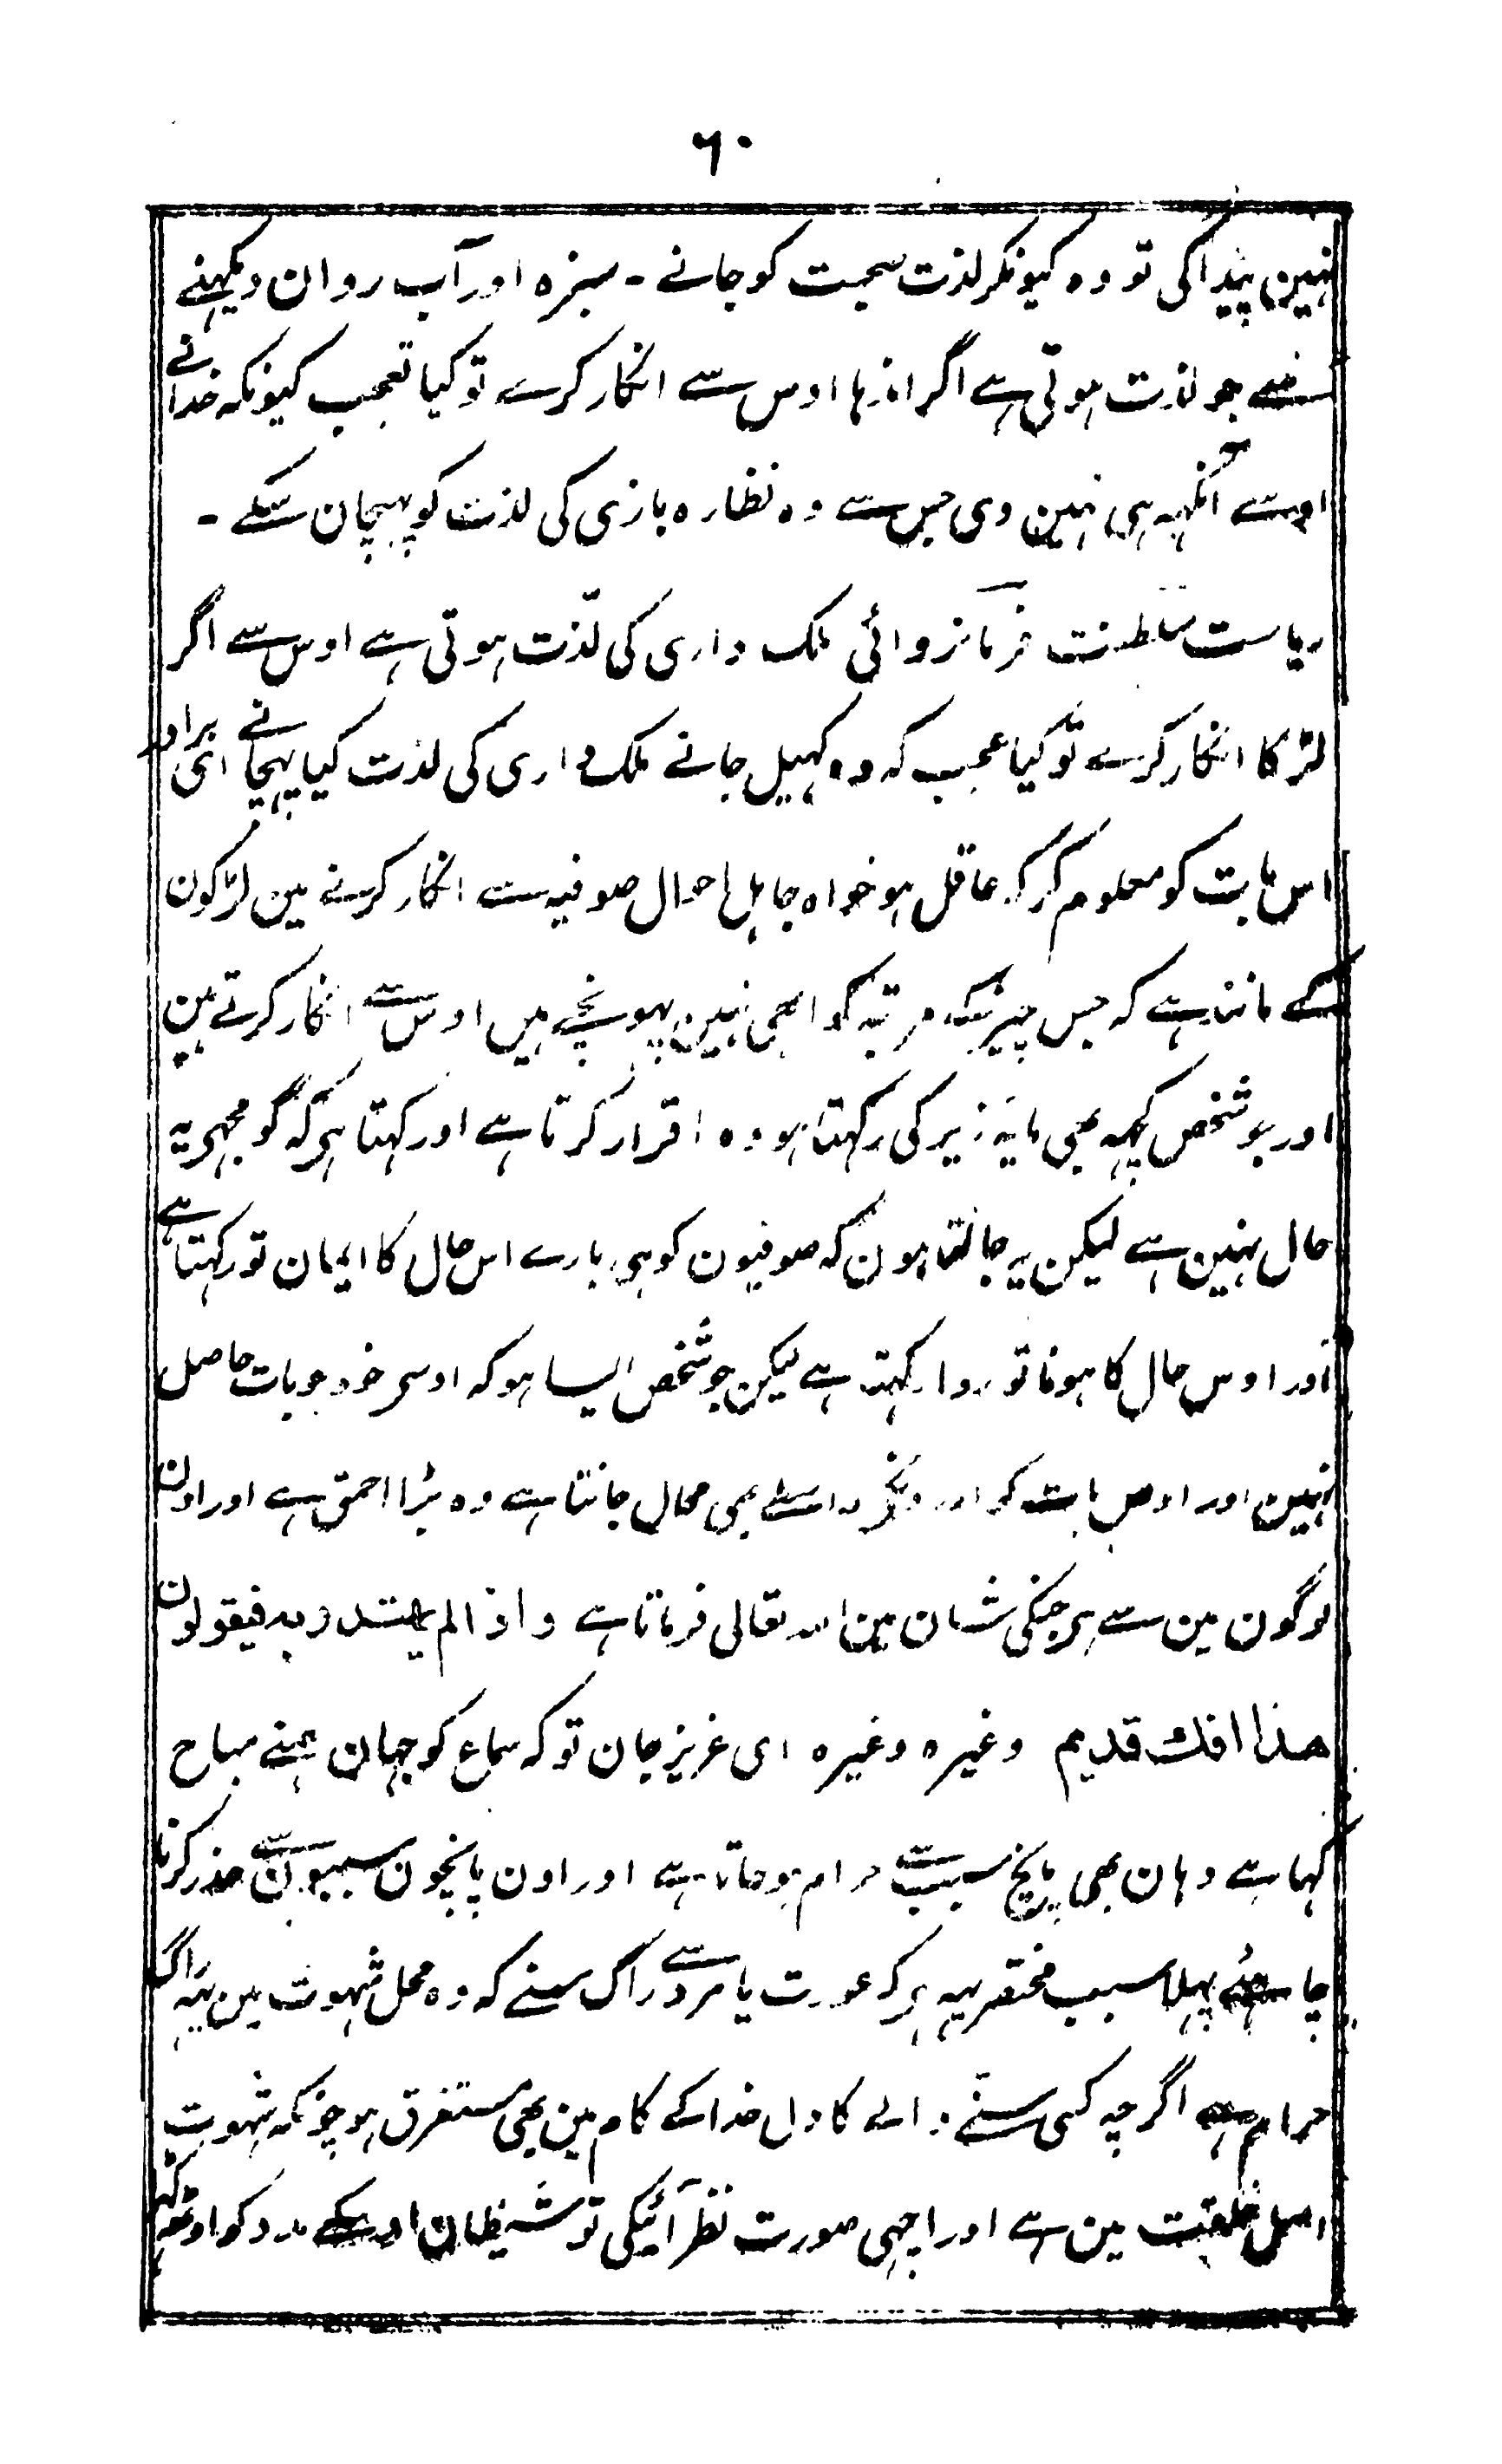 ۶۰
نہین پیدا کی تو وہ کیونکر لذت صحبت کو جانے - سبزہ اور آب روان دیکہنے
سے جو لذت ہوتی ہے اگر اندہا اوس سے انکار کرے تو کیا تعجب کیونکہ خدا نے
اوسے آنکہہ ہی نہین دی جس سے وہ نظارہ بازی کی لذت کو پہچان سکے -
ریاست سلطنت فرمانروائی ملک داری کی لذّت ہوتی ہے اوس سے اگر
لڑکا انکار کرے تو کیا عجب کہ وہ کہیل جانے ملک داری کی لذت کیا پہچانے ای برادر
اس بات کو معلوم کر کہ عاقل ہو خواہ جاہل احوال صوفیہ سے انکار کرنے مین لڑکون
کے مانند ہے کہ جس چیز کے مرتبہ کو ابھی نہین پہونچے ہیں اوس سے انکار کرتے ہین
اور جو شخص کچہہ بھی مایۂ زیر کی رکہتا ہو وہ اقرار کرتا ہے اور کہتا ہی کہ گو مجہی یہ
حال نہین ہے لیکن یہ جانتا ہون کہ صوفیون کو ہی بارے اس حال کا ایمان تو رکہتا ہے
اور اوس حال کا ہونا تو روا رکہتا ہے لیکن جو شخص ایسا ہو کہ اوسی خود جو بات حاصل
نہین اور اوس بات کو اور ونکے واسطے بھی محال جانتا ہے وہ بڑا احمق ہے اور اون
لوگون مین سے ہی جنکی شان مین اللہ تعالی فرماتا ہے و اذ الم یہتدوا بہ فیقولون
ھذا افک قدیم وغیرہ وغیرہ ای عزیز جان تو کہ سماع کو جہان ہمنے مباح
کہا ہے وہان بھی پانچ سبب سے حرام ہو جاتا ہے اور اون پانچون سببون سے حذر کرنا
چاہئے پہلا سبب مختصر یہہ ہی کہ عورت یا مرد سے راگ سنے کہ وہ محل شہوت مین یہہ راگ
حرام ہے اگرچہ کسی سننے والے کا دل خدا کے کام مین بھی مستغرق ہو چونکہ شہوت
اصل خلقت مین ہے اور اچہی صورت نظر آئیگی تو شیطان اوسکے مدد کو اوٹھہ